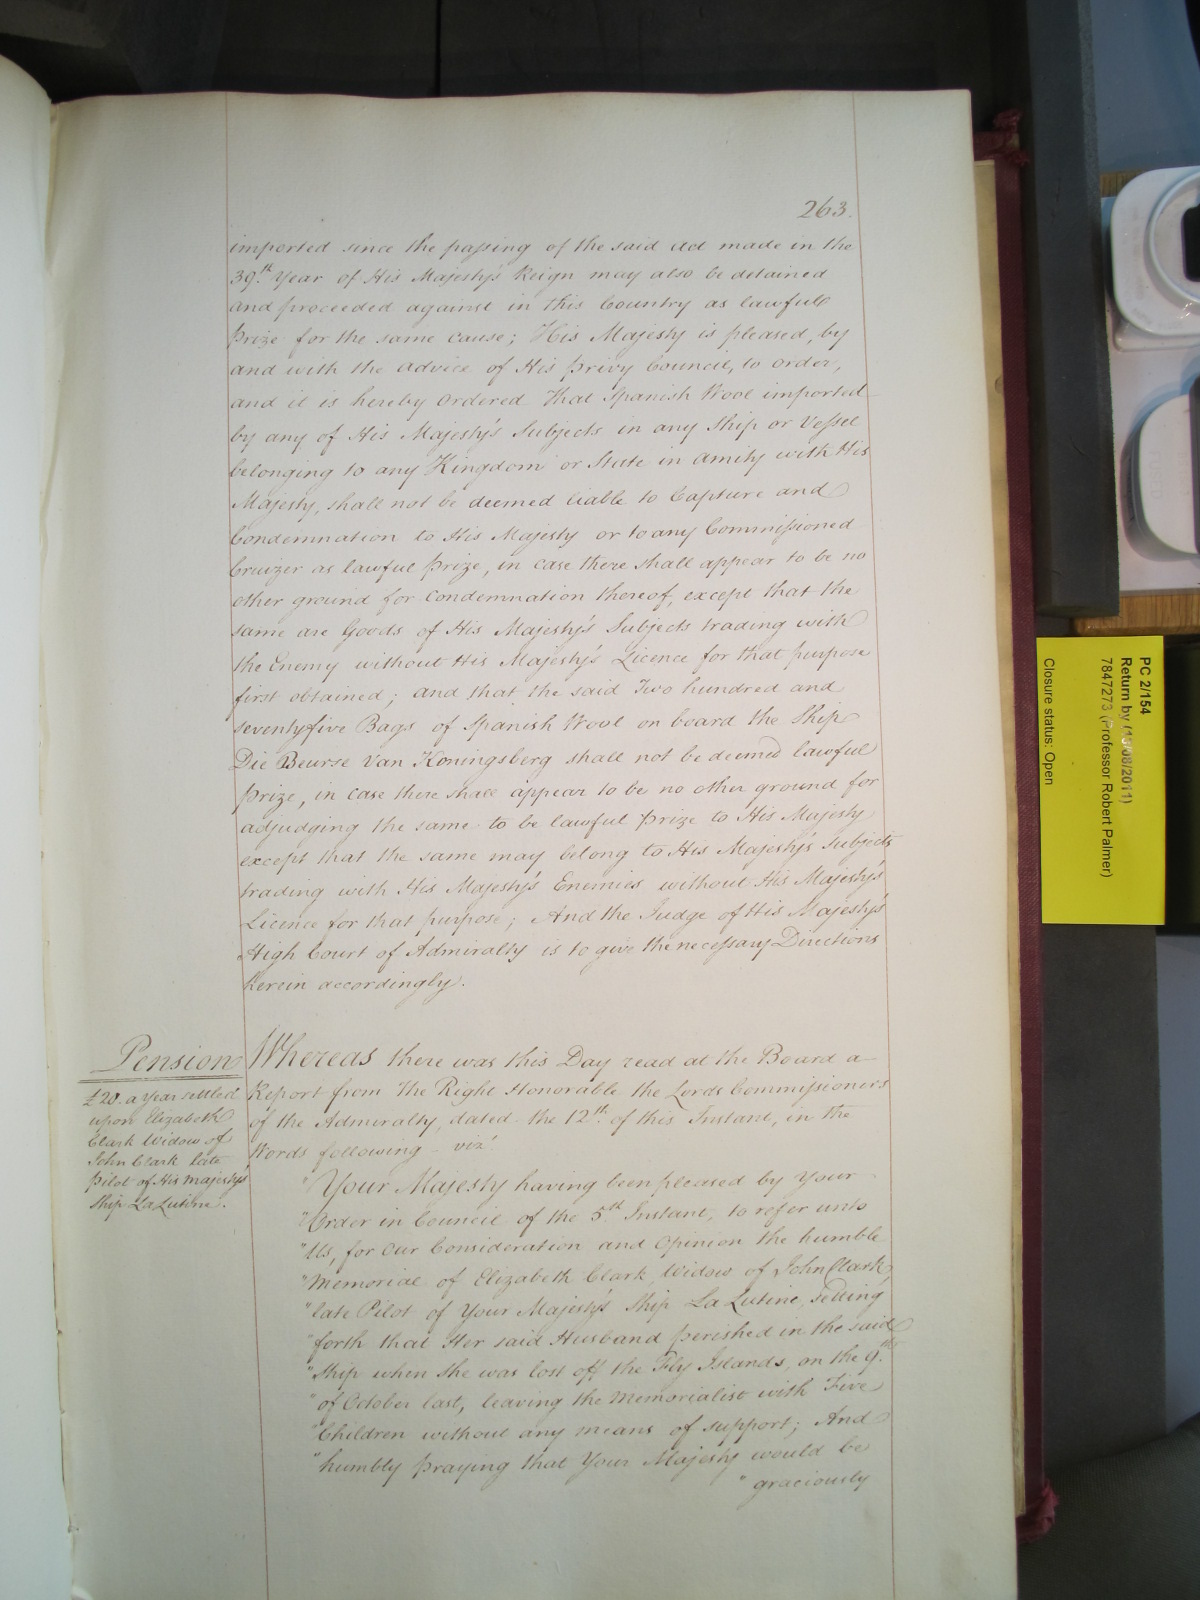 263.
imported since the passing of the said Act made in the
39.th Year of His Majesty's Reign may also be detained
and proceeded against in this Country as lawful
Prize for the same cause; His Majesty is pleased, by
and with the advice of His Privy Council, to order,
and it is hereby Ordered That Spanish Wool imported
by any of His Majesty's Subjects in any Ship or Vessel
belonging to any Kingdom or State in Amity with His
Majesty, shall not be deemed liable to Capture and
Condemnation to His Majesty or to any Commissioned
Cruizer as lawful Prize, in case there shall appear to be no
other ground for Condemnation thereof, except that the
same are Goods of His Majesty's Subjects trading with
the Enemy without His Majesty's Licence for that purpose
first obtained; and that the said Two hundred and
seventyfive Bags of Spanish Wool on board the Ship
Die Beurse Van Koningsberg shall not be deemed lawful
Prize, in case there shall appear to be no other ground for
adjudging the same to be lawful Prize to His Majesty
except that the same may belong to His Majesty's Subjects
trading with His Majesty's Enemies without His Majesty's
Licence for that purpose; And the Judge of His Majesty's
High Court of Admiralty is to give the necessary Directions
herein accordingly.
Pension
£20. a Year settled
upon Elizabeth
Clark Widow of
John Clark late
Pilot of His Majesty's
Ship La Lutine.
Whereas there was this Day read at the Board a
Report from The Right Honorable the Lords Commissioners
of the Admiralty, dated the 12.th of this Instant, in the
Words following - viz.t
"Your Majesty having been pleased by Your
"Order in Council of the 5th Instant, to refer unto
"Us, for Our Consideration and Opinion the humble
"Memorial of Elizabeth Clark, Widow of John Clark,
"late Pilot of Your Majesty's Ship La Lutine, setting
"forth that Her said Husband perished in the said
"Ship when she was lost off the Fly Islands, on the 9.th
"of October last, leaving the Memorialist with Five
"Children without any means of support; And
"humbly praying that Your Majesty would be
"graciously
PC 2/154
Return by (13/08/2011)
7847273 (Professor Robert Palmer)
Closure status: Open